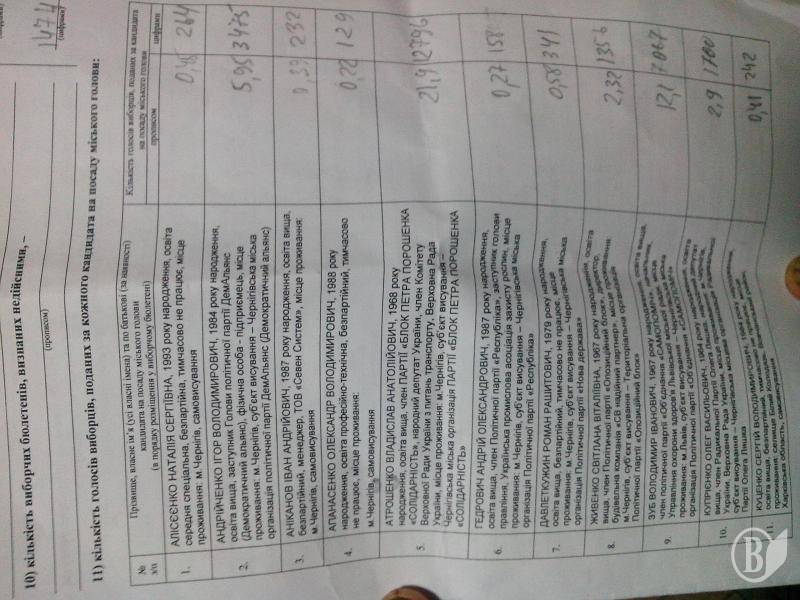 1474
(цифрами)
10) кількість виборчих бюлетенів, визнаних недійсними, –
(прописом)
11) кількість голосів виборців, поданих за кожного кандидата на посаду міського голови:
№ з/п
Прізвище, власне ім'я (усі власні імена) та по батькові (за наявності)
кандидата на посаду міського голови
(в порядку розміщення у виборчому бюлетені)
Кількість голосів виборців, поданих за кандидата
на посаду міського голови
прописом
цифрами
1.
АЛІСЄЄНКО НАТАЛІЯ СЕРГІЇВНА, 1993 року народження, освіта
середня спеціальна, безпартійна, тимчасово не працює, місце
проживання: м.Чернігів, самовисування
264
2.
АНДРІЙЧЕНКО ІГОР ВОЛОДИМИРОВИЧ, 1984 року народження,
освіта вища, заступник Голови політичної партії ДемАльянс
(Демократичний альянс), фізична особа - підприємець, місце
проживання: м.Чернігів, суб'єкт висування – Чернігівська міська
організація політичної партії ДемАльянс (Демократичний альянс)
5,95 3475
3.
АНІКАНОВ ІВАН АНДРІЙОВИЧ, 1987 року народження, освіта вища,
безпартійний, менеджер, ТОВ «Севен Систем», місце проживання:
м.Чернігів, самовисування
0,39 232
4.
АПАНАСЕНКО ОЛЕКСАНДР ВОЛОДИМИРОВИЧ, 1988 року
народження, освіта професійно-технічна, безпартійний, тимчасово
не працює, місце проживання:
м.Чернігів, самовисування
0,22 129
5.
АТРОШЕНКО ВЛАДИСЛАВ АНАТОЛІЙОВИЧ, 1968 року
народження, освіта вища, член ПАРТІЇ «БЛОК ПЕТРА ПОРОШЕНКА
«СОЛІДАРНІСТЬ», народний депутат України, член Комітету
Верховної Ради України з питань транспорту, Верховна Рада
України, місце проживання: м.Чернігів, суб'єкт висування –
Чернігівська міська організація ПАРТІЇ «БЛОК ПЕТРА ПОРОШЕНКА
«СОЛІДАРНІСТЬ»
21,9 12796
6.
ГЕДРОВИЧ АНДРІЙ ОЛЕКСАНДРОВИЧ, 1987 року народження,
освіта вища, член Політичної партії «Республіка», заступник голови
правління, Українська промислова асоціація захисту рослин, місце
проживання: м.Чернігів, суб'єкт висування – Чернігівська міська
організація Політичної партії «Республіка»
0,27
7.
ДАВЛЕТКУЖИН РОМАН РАШИТОВИЧ, 1979 року народження,
освіта вища, безпартійний, тимчасово не працює, місце
проживання: м.Чернігів, суб'єкт висування – Чернігівська міська
організація Політичної партії «Нова держава»
0,58 341
8.
ЖИВЕНКО СВІТЛАНА ВІТАЛІЇВНА, 1967 року народження, освіта
вища, член Політичної партії «Опозиційний блок», директор,
будівельна компанія «СВ надійний партнер», місце проживання:
м.Чернігів, суб'єкт висування – Територіальна організація
Політичної партії «Опозиційний блок»
2,32 1356
9.
ЗУБ ВОЛОДИМИР ІВАНОВИЧ, 1967 року народження, освіта вища,
член політичної партії «Об'єднання «САМОПОМІЧ»,
Управління охорони здоров'я Львівської міської ради, місце
проживання: м.Львів, суб'єкт висування –
організація Політичної партії «Об'єднання «САМОПОМІЧ»
12,1 7067
10.
КУПРІЄНКО ОЛЕГ ВАСИЛЬОВИЧ, 1964 року народження, освіта
вища, член Радикальної Партії Олега Ляшка, народний депутат
України, Верховна Рада України, місце
суб'єкт висування – Чернігівська міська
Партії Олега Ляшка
2,9 1700
11.
КУЦЕНКО СЕРГІЙ ВОЛОДИМИРОВИЧ,
освіта вища, безпартійний,
проживання: селище
Харківська область, самовисування
0,41 242
В